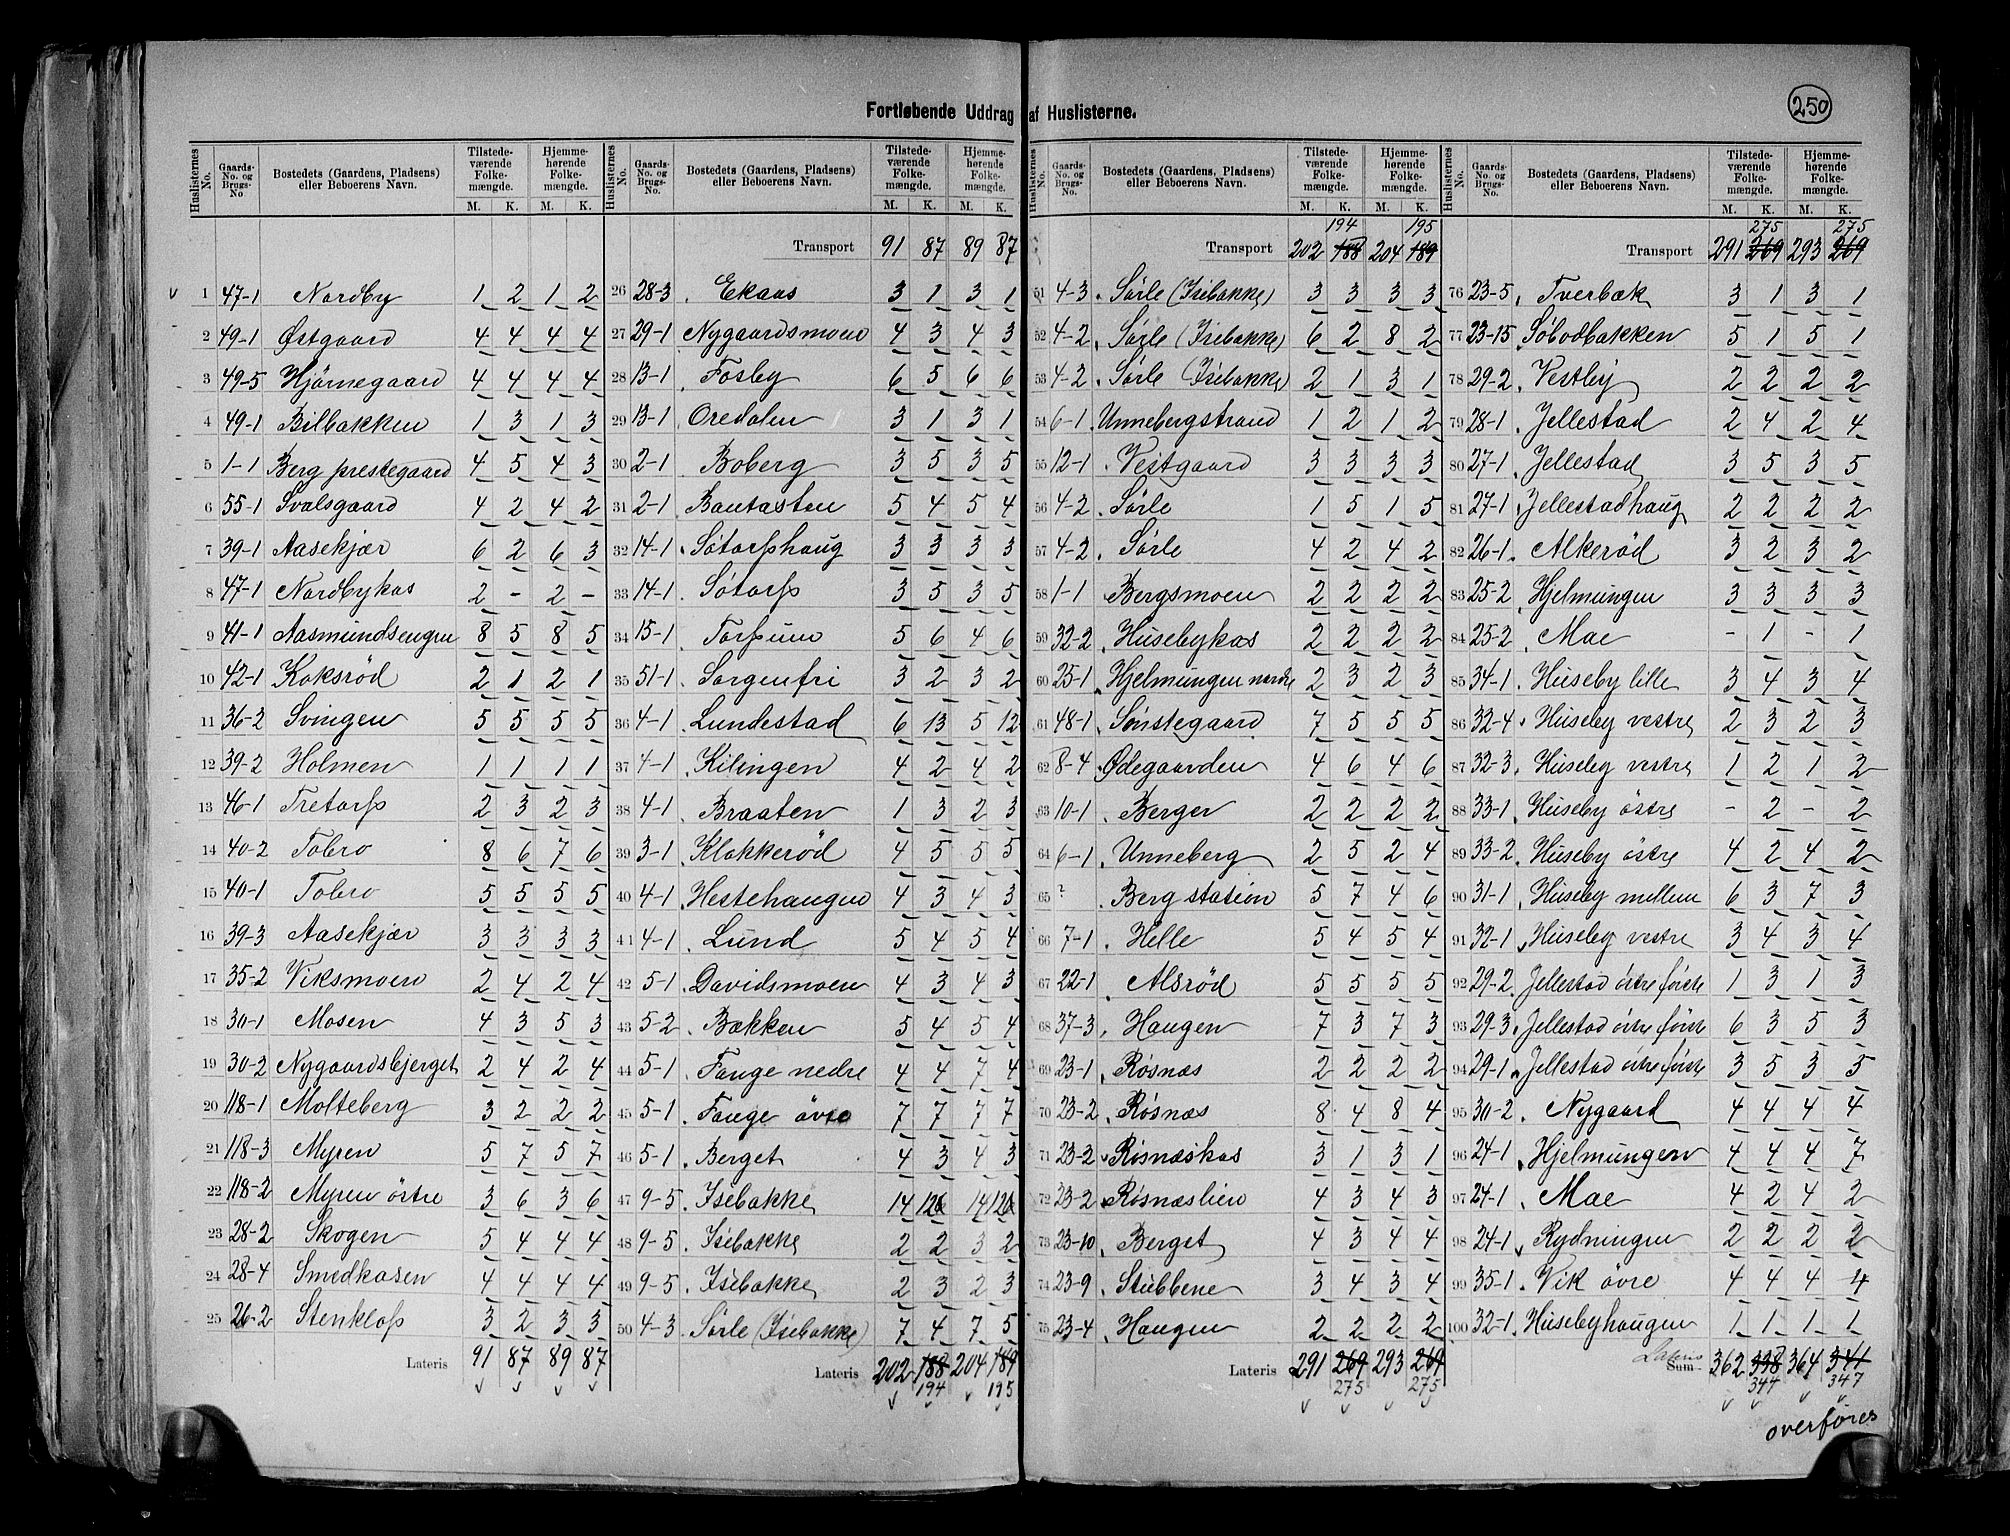 250
Fortløbende Uddrag af Huslisterne.
Huslisternes No. | Gaards-No. og Brugs-No | Bostedets (Gaardens, Pladsens) eller Beboerens Navn. | Tilstedeværende Folkemængde. M. K. | Hjemmehørende Folkemængde. M. K.
1 47-1 Nordby 1 2 1 2
2 49-1 Østgaard 4 4 4 4
3 49-5 Hjørnegaard 4 4 4 4
4 49-1 Bilbakken 1 3 1 3
5 1-1 Berg prestegaard 4 5 4 3
6 55-1 Svalsgaard 4 2 4 2
7 39-1 Aasekjær 6 2 6 3
8 47-1 Nordbykas 2 - 2 -
9 41-1 Aasmundsengen 8 5 8 5
10 42-1 Koksrød 2 1 2 1
11 36-2 Svingen 5 5 5 5
12 39-2 Holmen 1 1 1 1
13 46-1 Tretorp 2 3 2 3
14 40-2 Tobro 8 6 7 6
15 40-1 Tobro 5 5 5 5
16 39-3 Aasekjær 3 3 3 3
17 35-2 Viksmoen 2 4 2 4
18 30-1 Mosen 4 3 5 3
19 30-2 Nygaardsbjerget 2 4 2 4
20 118-1 Molteberg 3 2 2 2
21 118-3 Myren 5 7 5 7
22 118-2 Myren östre 3 6 3 6
23 28-2 Skogen 5 4 4 4
24 28-4 Smedkasen 4 4 4 4
25 26-2 Stenklop 3 2 3 3
Lateris 91 87 89 87
Huslisternes No. | Gaards-No. og Brugs-No. | Bostedets (Gaardens, Pladsens) eller Beboerens Navn. | Tilstedeværende Folkemængde. M. K. | Hjemmehørende Folkemængde. M. K.
Transport 91 87 89 87
26 28-3 Ekaas 3 1 3 1
27 29-1 Nygaardsmoen 4 3 4 3
28 13-1 Fosby 6 5 6 6
29 13-1 Oredalen 3 1 3 1
30 2-1 Boberg 3 5 3 5
31 2-1 Bautasten 5 4 5 4
32 14-1 Søtorphaug 3 3 3 3
33 14-1 Søtorp 3 5 3 5
34 15-1 Torpum 5 6 4 6
35 51-1 Sorgenfri 3 2 3 2
36 4-1 Lundestad 6 13 5 12
37 4-1 Kilingen 4 2 4 2
38 4-1 Braaten 1 3 2 3
39 3-1 Klokkerød 4 5 5 5
40 4-1 Hestehaugen 4 3 4 3
41 4-1 Lund 5 4 5 4
42 5-1 Davidsmoen 4 3 4 3
43 5-2 Bækken 5 4 5 4
44 5-1 Fange nedre 4 4 7 4
45 5-1 Fange övre 7 7 7 7
46 5-1 Berget 4 3 4 3
47 9-5 Isebakke 14 12 14 12
48 9-5 Isebakke 2 2 3 2
49 9-5 Isebakke 2 3 2 3
50 4-3 Sørle (Isebakke) 7 4 7 5
Lateris 202 188 204 189
194 195
Huslisternes No. | Gaards-No. og Brugs-No. | Bostedets (Gaardens, Pladsens) eller Beboerens Navn. | Tilstedeværende Folkemængde. M. K. | Hjemmehørende Folkemængde. M. K.
194 195
Transport 202 188 204 189
51 4-3 Sørle (Isebakke) 3 3 3 3
52 4-2 Sørle (Isebakke) 6 2 8 2
53 4-2 Sørle (Isebakke) 2 1 3 1
54 6-1 Unnebergstrand 1 2 1 2
55 12-1 Vestgaard 3 3 3 3
56 4-2 Sørle 1 5 1 5
57 4-2 Sørle 4 2 4 2
58 1-1 Bergsmoen 2 2 2 2
59 32-2 Husebykas 2 2 2 2
60 25-1 Hjelmungen nordre 2 3 2 3
61 48-1 Sønstegaard 7 5 5 5
62 8-4 Ødegaarden 4 6 4 6
63 10-1 Berger 2 2 2 2
64 6-1 Unneberg 2 5 2 4
65 ? Berg station 5 7 4 6
66 7-1 Helle 5 4 5 4
67 22-1 Alsrød 5 5 5 5
68 37-3 Haugen 7 3 7 3
69 23-1 Røsnæs 2 2 2 2
70 23-2 Røsnæs 8 4 8 4
71 23-2 Røsnæskas 3 1 3 1
72 23-2 Røsnæslien 4 3 4 3
73 23-10 Berget 4 3 4 4
74 23-9 Stubbene 3 4 3 4
75 23-4 Haugen 2 2 2 2
Lateris 291 269 293 269
275 275
Huslisternes No. | Gaards-No. og Brugs-No. | Bostedets (Gaardens, Pladsens) eller Beboerens Navn. | Tilstedeværende Folkemængde. M. K. | Hjemmehørende Folkemængde. M. K.
275 275
Transport 291 269 293 269
76 23-5 Tverbæk 3 1 3 1
77 23-15 Søbodbakken 5 1 5 1
78 29-2 Vestby 2 2 2 2
79 28-1 Jellestad 2 4 2 4
80 27-1 Jellestad 3 5 3 5
81 27-1 Jellestadhaug 2 2 2 2
82 26-1 Alkerød 3 2 3 2
83 25-2 Hjelmungen 3 3 3 3
84 25-2 Mae - 1 - 1
85 34-1 Huseby lille 3 4 3 4
86 32-4 Huseby vestre 2 3 2 3
87 32-3 Huseby vestre 1 2 1 2
88 33-1 Huseby östre - 2 - 2
89 33-2 Huseby östre 4 2 4 2
90 31-1 Huseby mellem 6 3 7 3
91 32-1 Huseby vestre 3 4 3 4
92 29-2 Jellestad östre förste 1 3 1 3
93 29-3 Jellestad östre förste 6 3 5 3
94 29-1 Jellestad östre förste 3 5 3 5
95 30-2 Nygaard 4 4 4 4
96 24-1 Hjelmungen 4 4 4 7
97 24-1 Mae 4 2 4 2
98 24-1 Rydningen 2 2 2 2
99 35-1 Vik övre 4 4 4 4
100 32-1 Husebyhaugen 1 1 1 1
Lateris
Sum 362 338 364 341
344 347
overføres